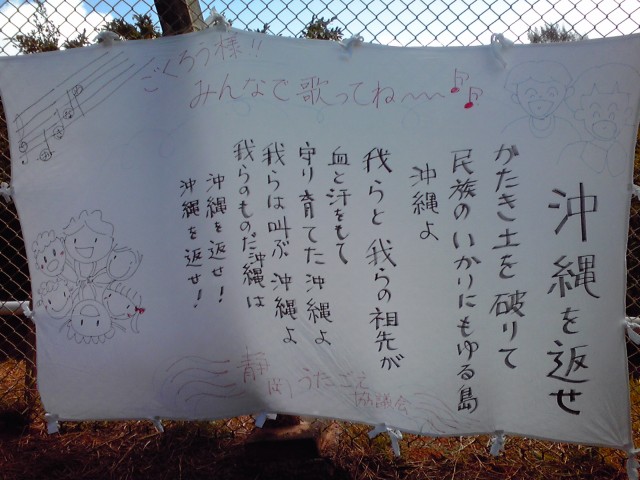 ごくろう様!!
みんなで歌ってね〜〜♪
沖縄を返せ
がたき土を破りて
民族のいかりにもゆる島
沖縄よ
我らと我らの祖先が
血と汗をもて
守り育てた沖縄よ
我らは叫ぶ沖縄よ
我らのものだ沖縄は
沖縄を返せ!
沖縄を返せ!
静岡うたごえ
協議会